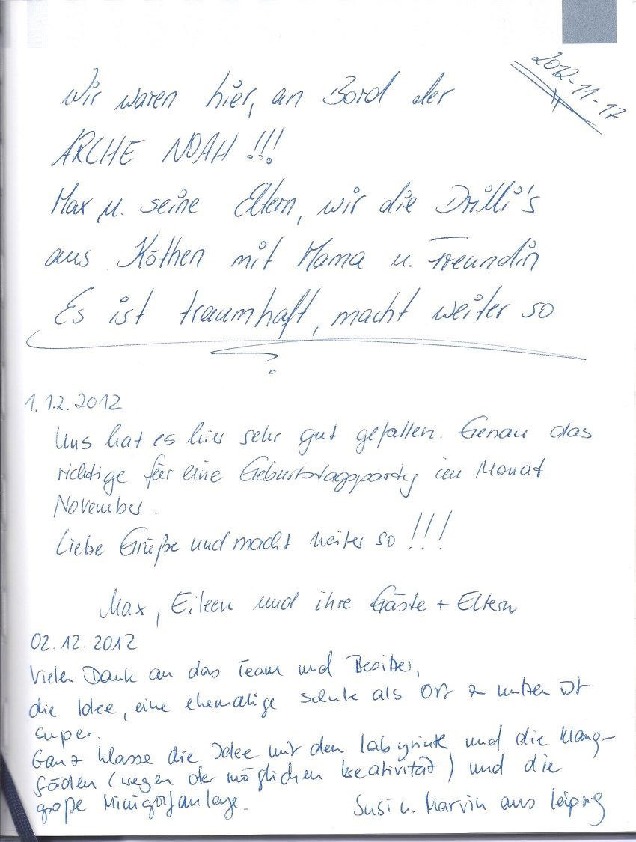 2012-11-17
Wir waren hier, an Bord der
ARCHE NOAH !!!
Max u. seine Eltern, wir die Drilli's
aus Köthen mit Mama u. Freundin
Es ist traumhaft, macht weiter so
1.12.2012
Uns hat es hier sehr gut gefallen. Genau das
richtige für eine Geburtstagsparty im Monat
November.
Liebe Grüße und macht weiter so !!!
Max, Eileen und ihre Gäste + Eltern
02.12.2012
Vielen Dank an das Team und Besitzer,
die Idee, eine ehemalige Schule als Ort zu nutzen ist
super.
Ganz klasse die Idee mit dem Labyrinth und die Klang-
(wegen der möglichen Kreativität) und die
große Minigolfanlage.
Susi u. Marvin aus Leipzig